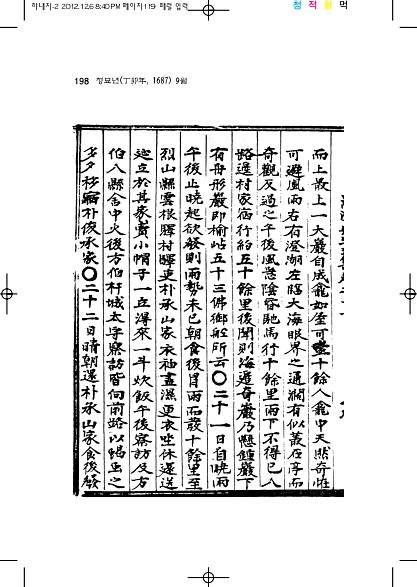 하내지-2 2012.12.6 8:40 PM 페이지119 매킹 입력
청 적 황 먹
198 정묘년(丁卯年, 1687) 9월
而上最上一大巖自成龕如屋可坐十餘人龕中天然奇怪
可避風雨右有澄湖左臨大海眼界之通濶有似叢石亭而
奇觀反過之午後風急陰曀馳馬行十餘里雨下不得已入
路邊村家宿行約五十餘里後聞則海邊奇巖乃懸鍾巖下
有舟形巖即楡岾五十三佛御船所云〇二十一日自曉雨
午後止晩起欲發則雨勢未已朝食後冒雨而發十餘里至
烈山縣雲根驛村驛吏朴承山家衣袖盡濕更衣坐休遅送
延立於其家賣小帽子一立得米一斗炊飯午後察訪及方
伯入縣舍中火後方伯杆城太守察訪皆向前路以蝎虫之
多夕移宿朴後承家〇二十二日晴朝還朴承山家食後發